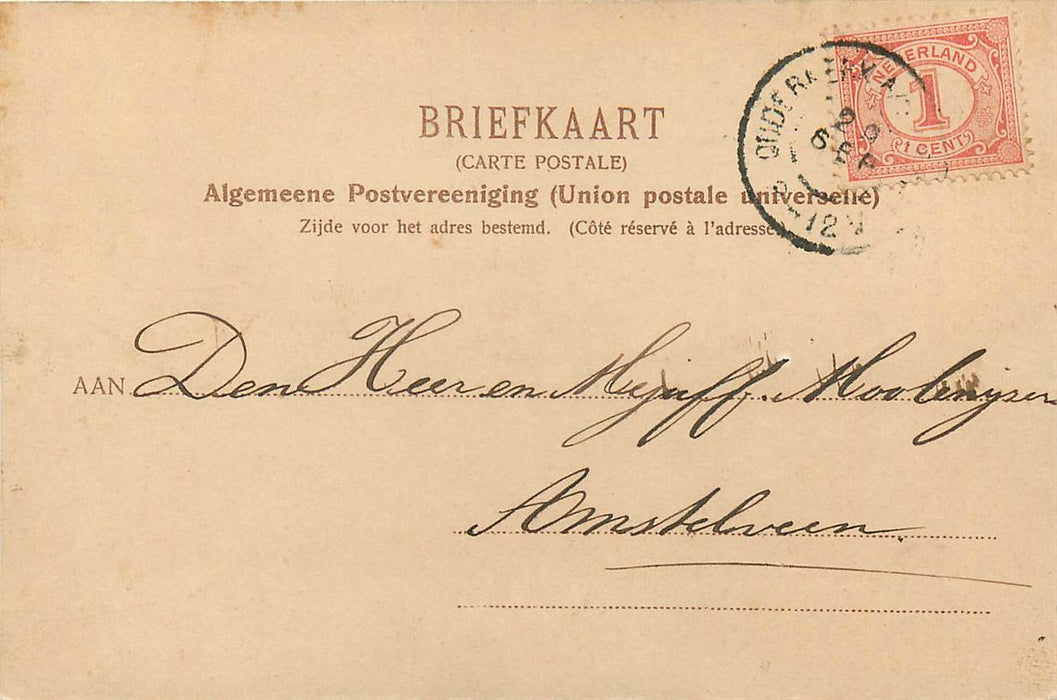 NEDERLAND
1
1 CENT
OUDERKERK A
29
SEP
8-12V
BRIEFKAART
(CARTE POSTALE)
Algemeene Postvereeniging (Union postale universelle)
Zijde voor het adres bestemd. (Côté réservé à l'adresse.)
AAN Den Heer en Mejuff. Moolenijser
Amstelveen.